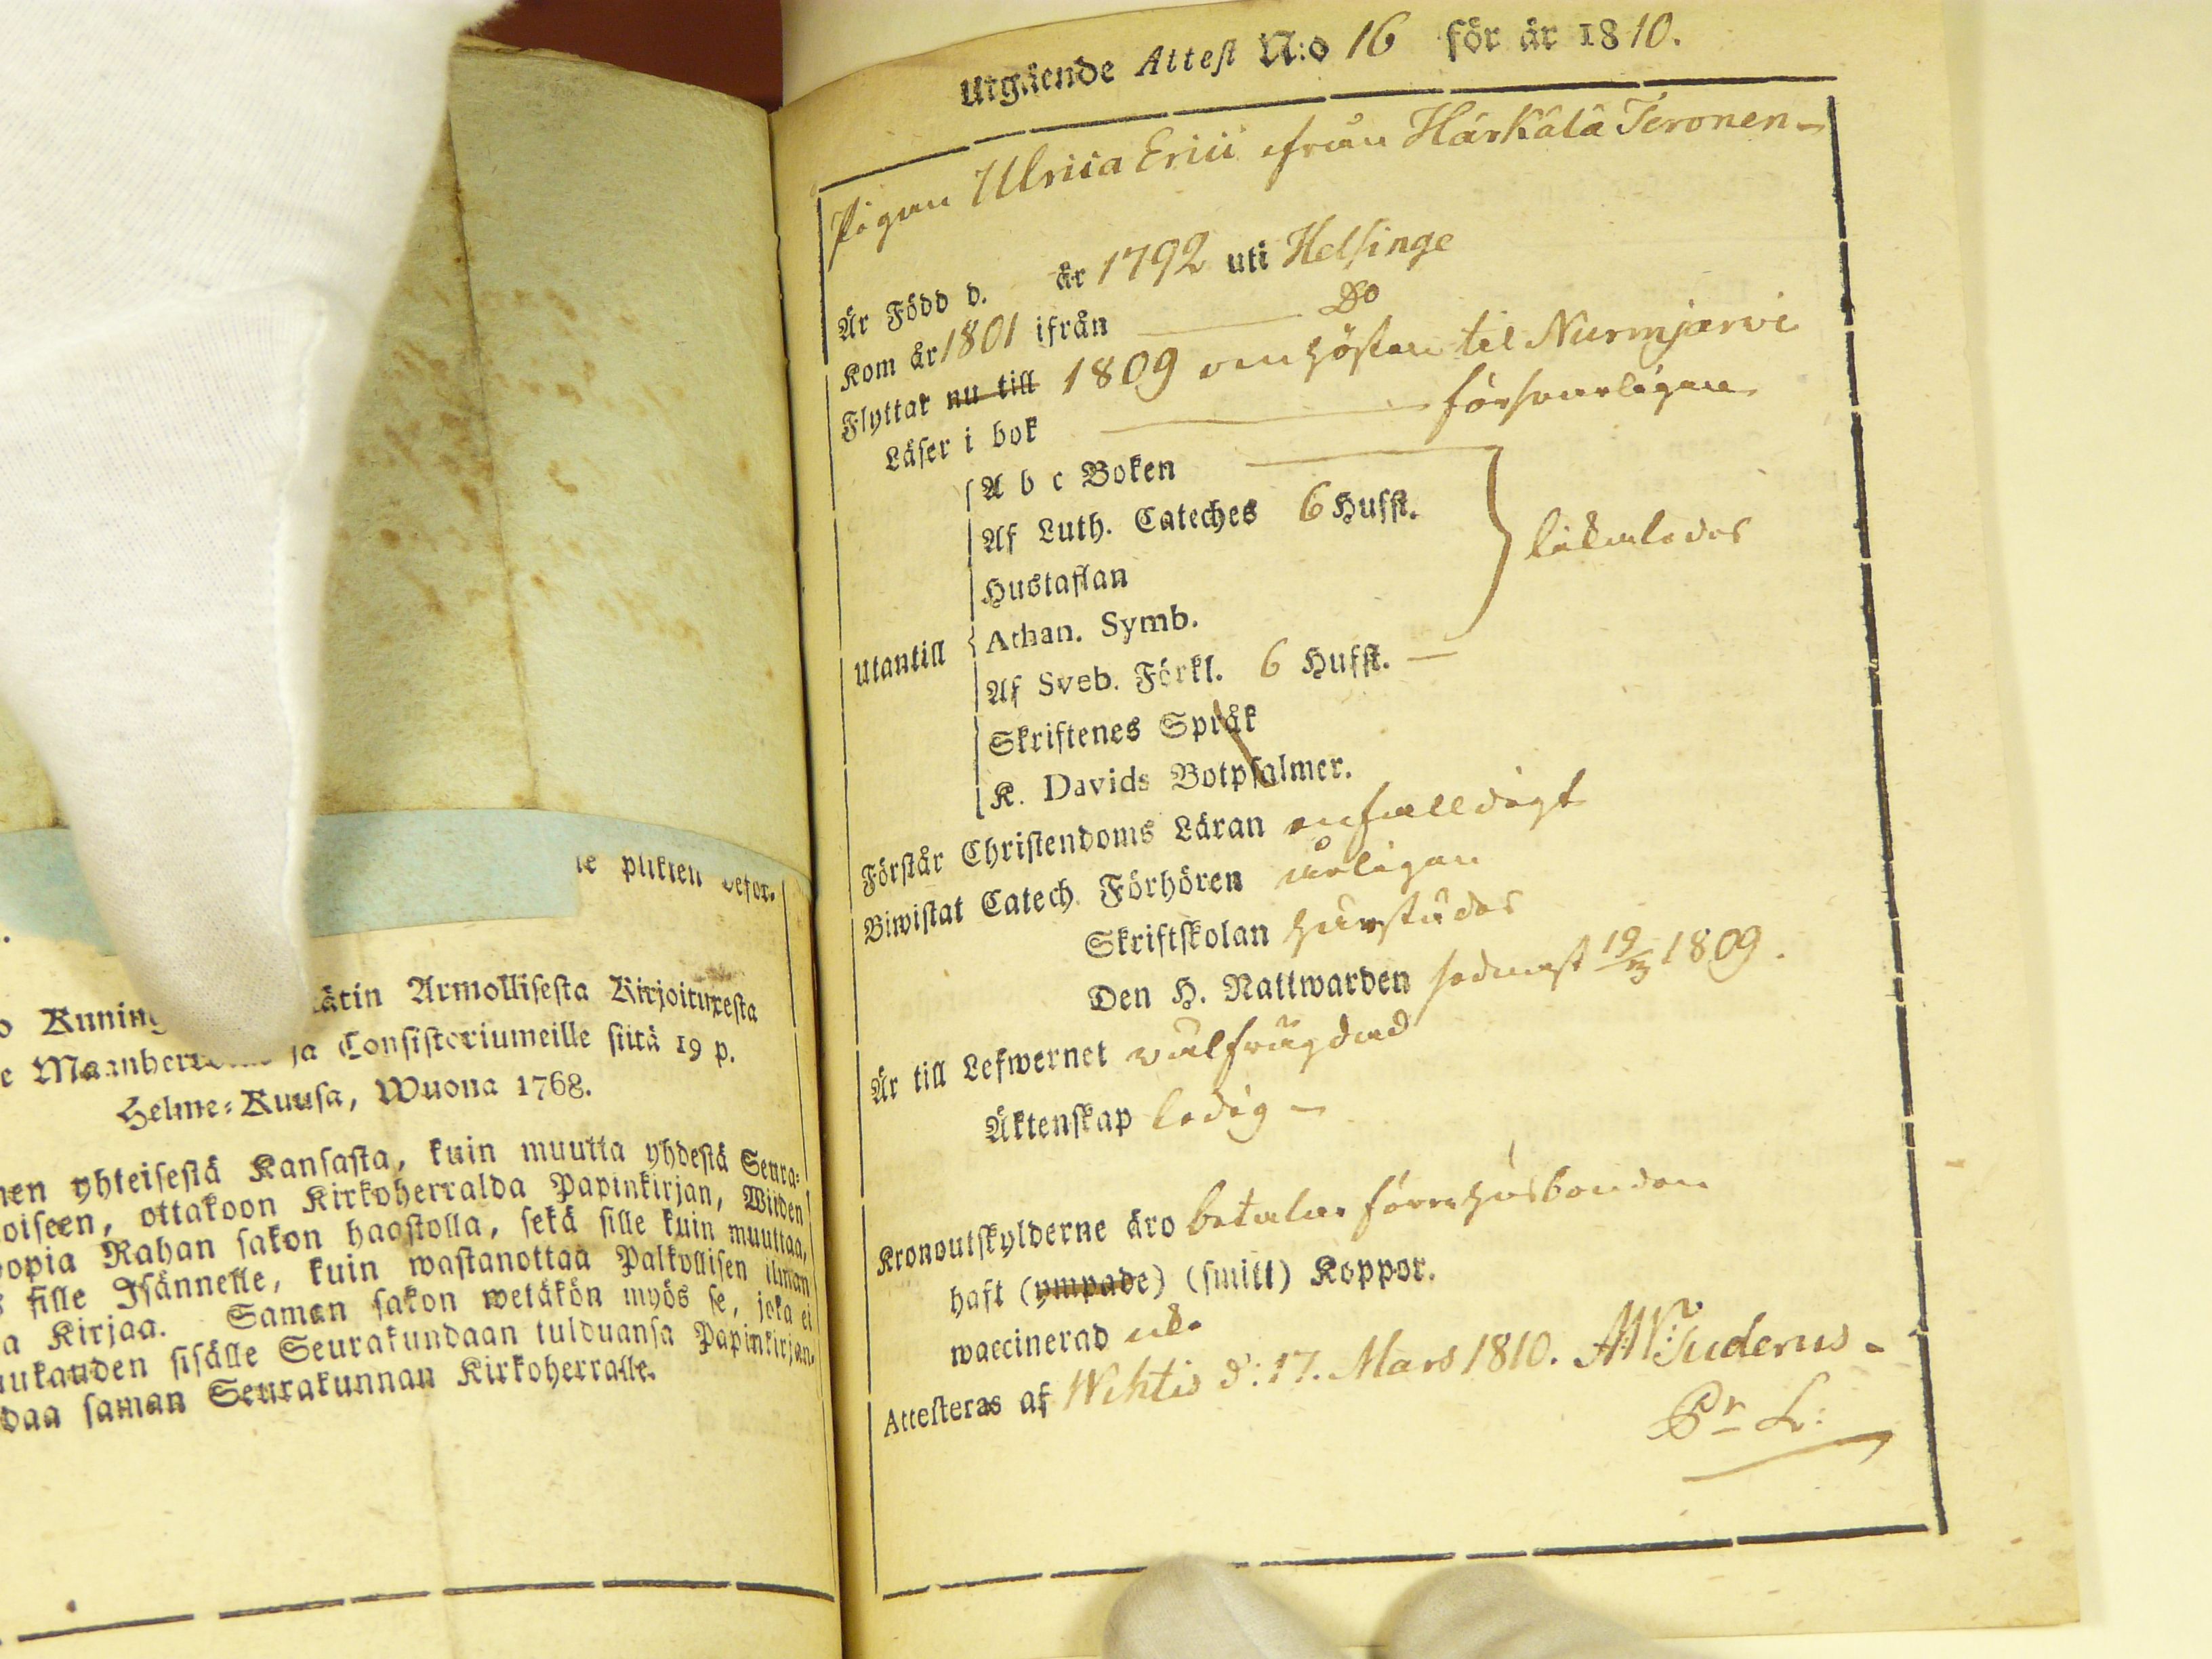 te plikten befor.
Kuning ätin Armollisesta Kirjoituxesta
e Maanherr ja Consistoriumeille siitä 19 p.
Helme-Kuusa, Wuona 1768.
nen yhteisestä Kansasta, kuin muutta yhdestä Seura-
oiseen, ottakoon Kirkoherralda Papinkirjan, Wiiden
opia Rahan sakon haastolla, sekä sille kuin muuttaa,
sille Isännelle, kuin wastanottaa Palkollisen ilman
a Kirjaa. Saman sakon wetäkön myös se, joka ei
uukauden sisälle Seurakundaan tulduansa Papinkirjan
daa saman Seurakunnan Kirkoherralle.
Utgående Attest N:o 16 för år 1810.
Pigan Ulrica Eric ifrån Härkälä Teronen
Är Född d. år 1792 uti Helsinge
Kom år 1801 ifrån Do
Flyttar nu till 1809 om hösten til Nurmjärvi
Läser i bok försvarligen
A b c Boken
Af Luth. Cateches 6 Hufst.
Hustaflan
likaledes
Utantill Athan. Symb.
Af Sveb. Förkl. 6 Hufst.
Skriftenes Språk
K. Davids Botpsalmer.
Förstår Christendoms Läran enfalldigt
Biwistat Catech. Förhören årligen
Skriftskolan härstädes
Den H. Nattwarden sednast 19/3 1809.
Är till Lefwernet välfrägdad
Äktenskap ledig
Kronoutskylderne äro betalar förra husbonden
haft (ympade) (smitt) Koppor.
waccinerad
Attesteras af Wihtis d: 17. Mars 1810. Tuderus
Pr L: